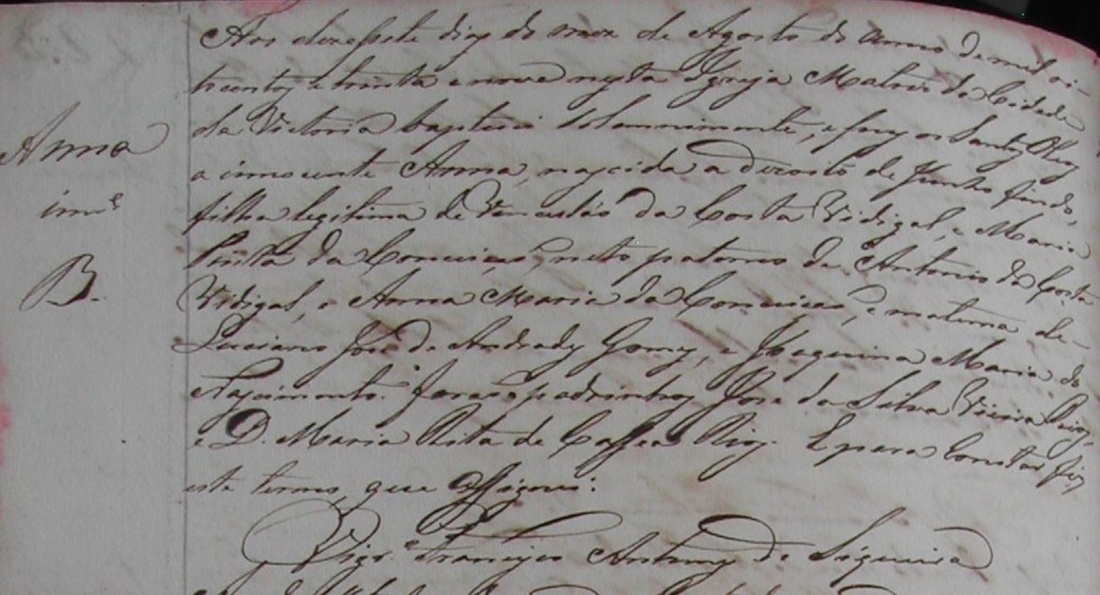 Anna
inn.e
B.
Aos dezessete dias do mez de Agosto do anno de mil oi-
tocentos e trinta e nove nesta Igreja Matriz da Cidade
da Victoria baptizei solemnemente, e puz os Santos Oleos
a innocente Anna, nascida a dezoito de Junho findo,
filha legitima de Venceslão da Costa Vidigal, e Maria
Pinta da Conceição, neta paterna de Antonio da Costa
Vidigal, e Anna Maria da Conceição, e materna de-
Luciano José de Andrade Gomes, e Joaquina Maria do
Nascimento. forão padrinhos José da Silva Vieira Rios,
e D. Maria Rita de Cassea Rios. E para constar fiz
este termo, que assignei.
Vigr.o Francisco Antunes de Siqueira